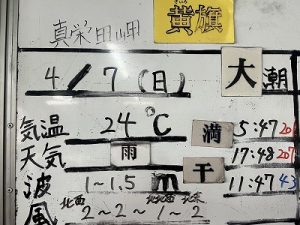 真栄田岬 黄旗
4/7(日) 大潮
気温 24℃ 満 5:47 20
天気 雨 17:48 207
波 1~1.5m 干 11:47 43
北西 北北西 北東
風 2~2~1~2